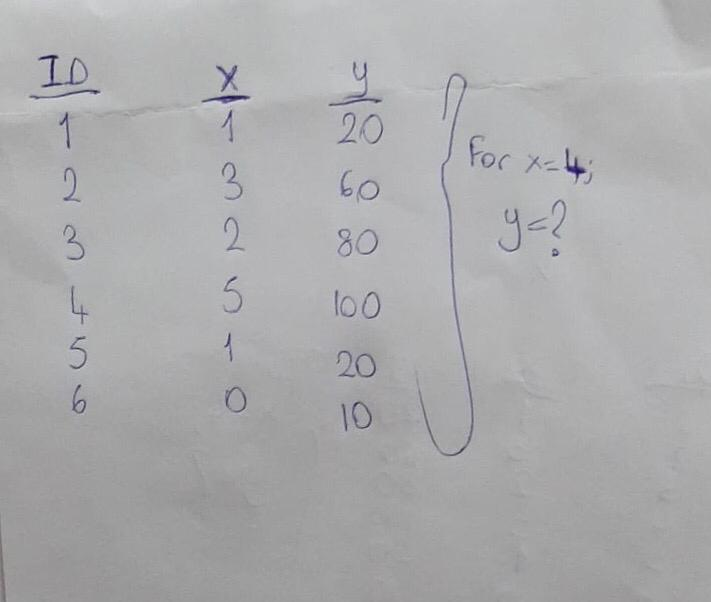 ID x y
1 1 20
2 3 60
3 2 80
4 5 100
5 1 20
6 0 10
For x=4;
y=?